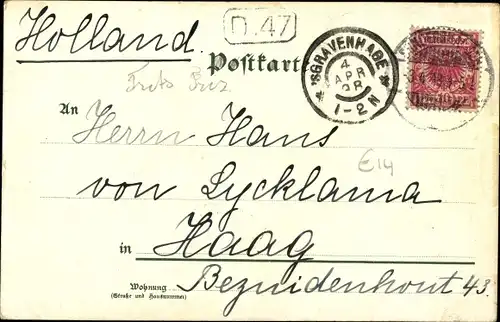 Holland.
D.47
Postkarte
'SGRAVENHAGE
4
APR
98
1-2N
An
Herrn Hans
von Lycklama
€14
in Haag
Wohnung
(Straße und Hausnummer)
Bezuidenhout 43.